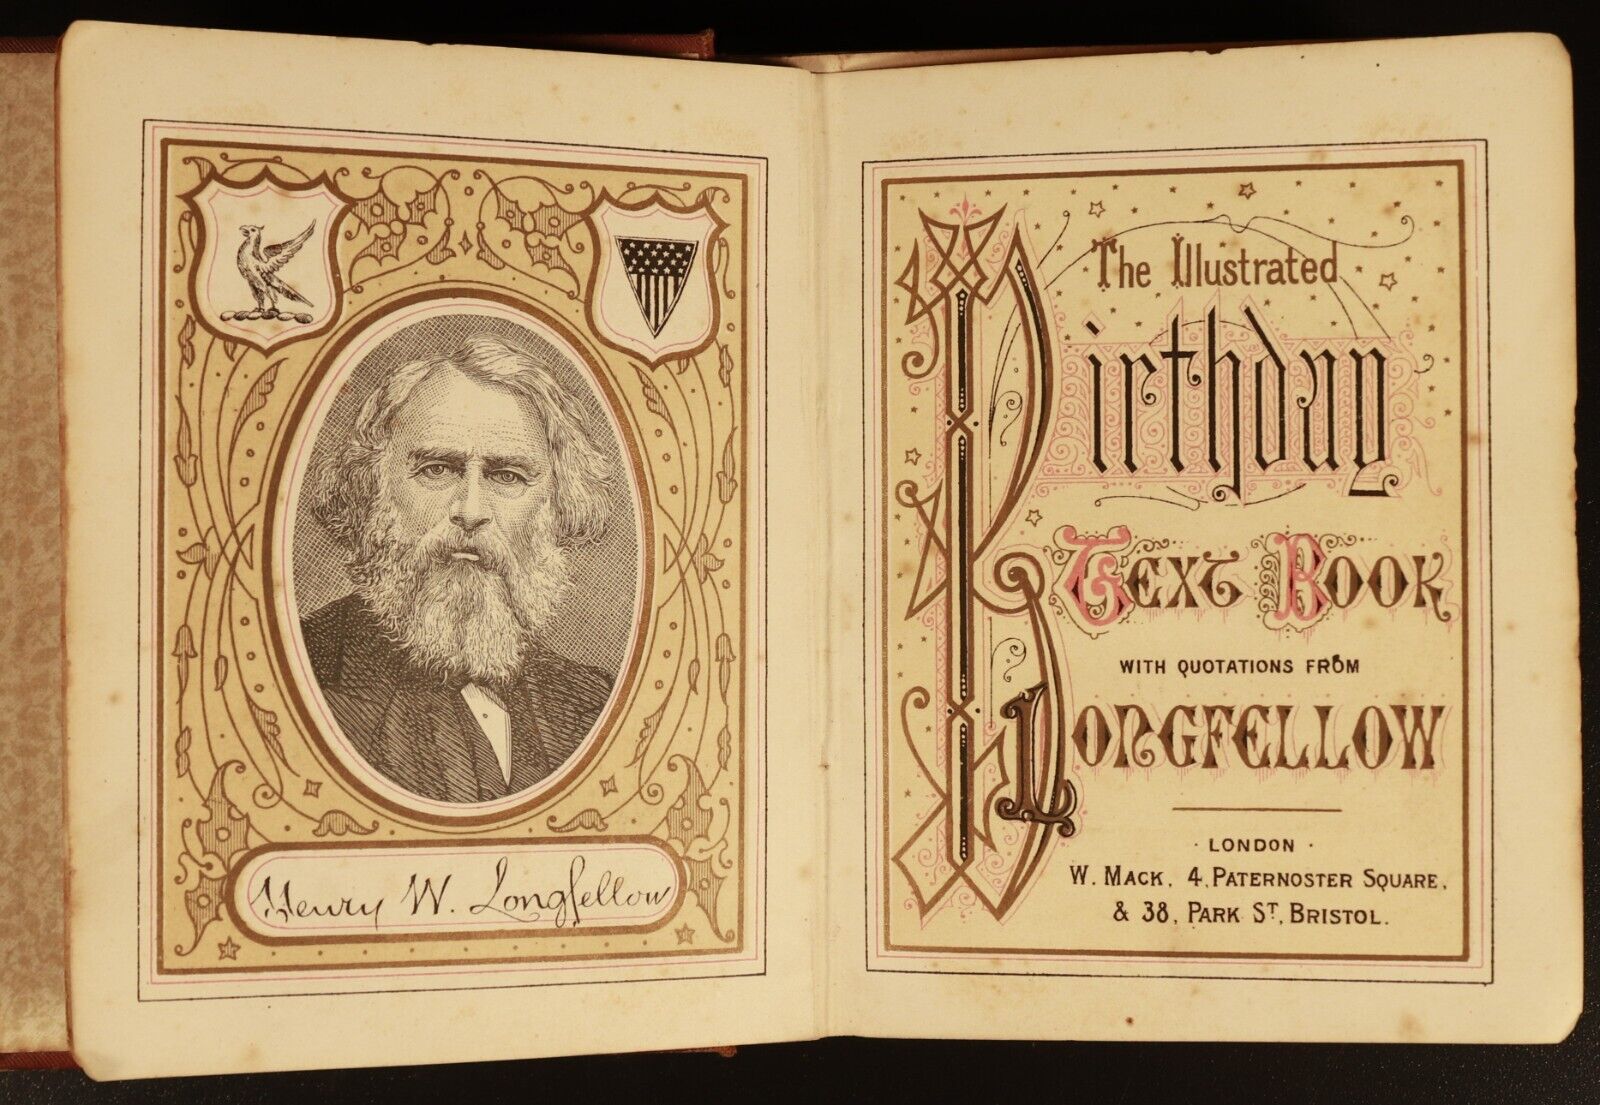 Henry W. Longfellow
The Illustrated
Birthday
Text Book
WITH QUOTATIONS FROM
LONGFELLOW
· LONDON ·
W. MACK, 4, PATERNOSTER SQUARE,
& 38, PARK ST, BRISTOL.